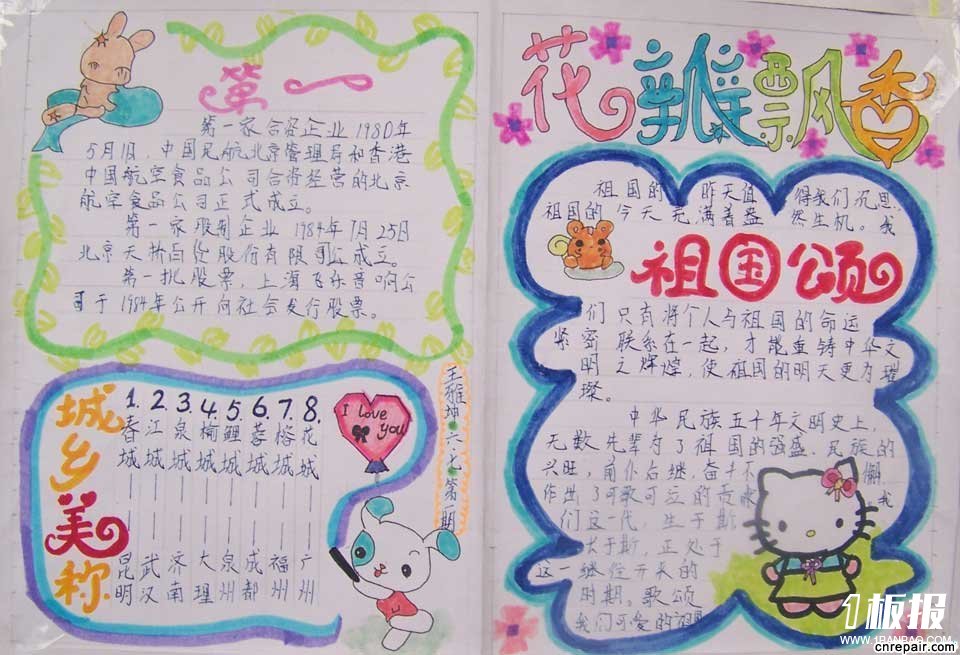 第一
第一家合资企业 1980年
5月1日，中国民航北京管理局和香港
中国航空食品公司合资经营的北京
航空食品公司正式成立。
第一家股制企业 1984年7月25日
北京天桥百货股份有限公司成立。
第一批股票，上海飞乐音响公
司于1984年公开向社会发行股票。
城乡美称
1.春城——昆明
2.江城——武汉
3.泉城——济南
4.榆城——大理
5.鲤城——泉州
6.蓉城——成都
7.榕城——福州
8.花城——广州
I love
you
王雅坤·六·七·第一期
花瓣飘香
祖国的 昨天值 得我们沉思
祖国的 今天充满着盎 然生机。我
祖国颂
们 只有将个人与祖国的命运
紧密 联系在一起，才能重铸中华文
明之辉煌，使祖国的明天更为璀
璨。
中华民族五千年文明史上，
无数先辈为了祖国的强盛、民族的
兴旺，前仆后继，奋斗不 懈
作出了可歌可泣的贡献。我
们这一代，生于斯
长于斯，正处于
这一继往开来的
时期。歌颂
我们可爱的祖国
1板报
WWW.1BANBAO.COM
cnrepair.com